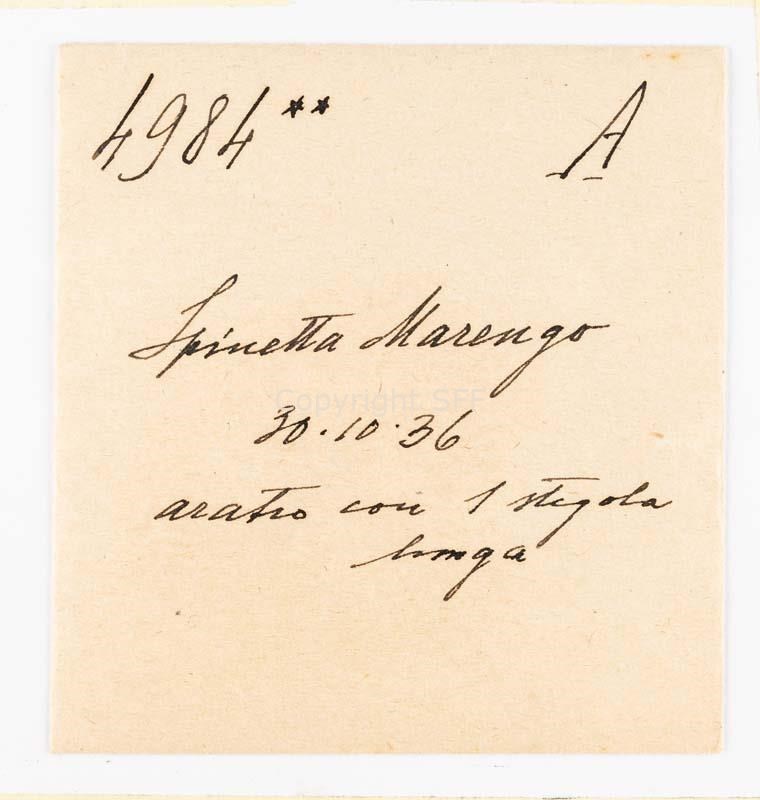 4984** A
Spinetta Marengo
Copyright SFF
30.10.36
aratro con 1 stegola
lunga